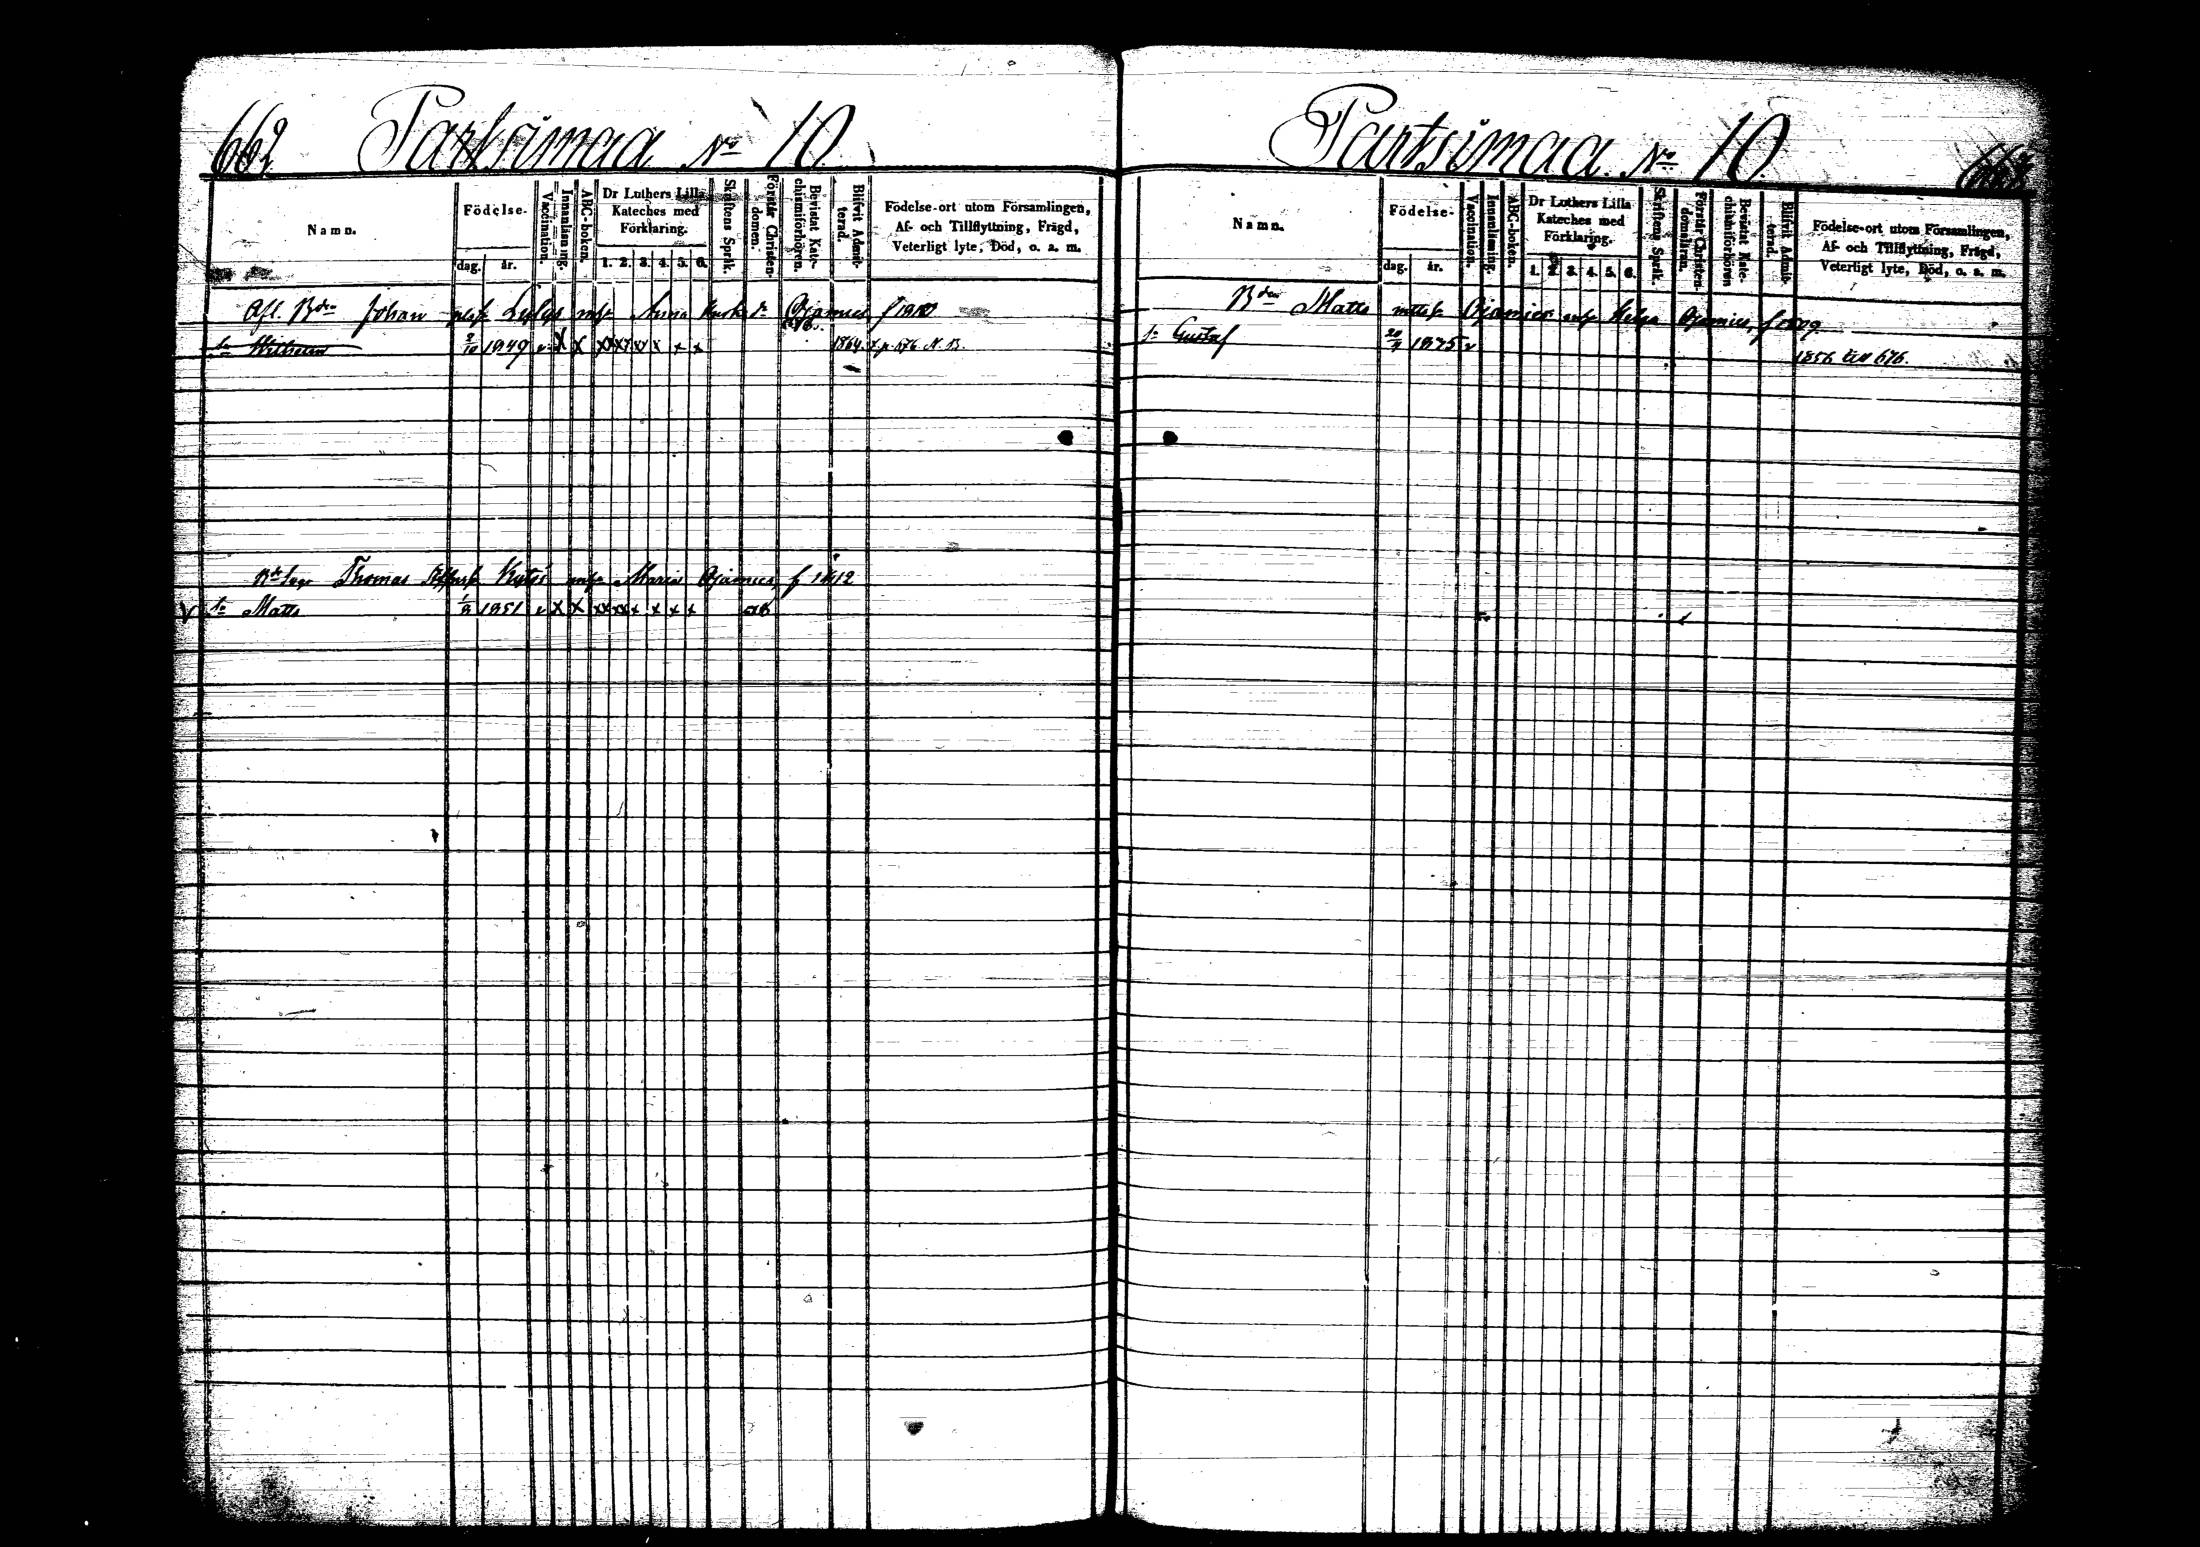 662 Partsimaa No 10.
Namn.
Födelse-
dag. år.
Vaccination.
Innanläsning.
ABC-boken.
Dr Luthers Lilla
Kateches med
Förklaring.
1. 2. 3. 4. 5. 6.
Skriftens Språk.
Förstår Christen-
domen.
Bevistat Kate-
chismiförhören.
Blifvit Admit-
terad.
Födelse-ort utom Församlingen,
Af- och Tillflyttning, Frägd,
Veterligt lyte, Död, o. a. m.
Afl. Bden Johan Anna Ojamies f
Sn Wilhelm 2/10 1849 v X X XX XX x x x 1864 p. 176 N. B.
Thomas Maria Ojamies, f 1812
V Sn Matts 1/8 1851 v X X XX XX x x x x ab
Partsimaa No 10
Namn.
Födelse-
dag. år.
Vaccination.
Innanläsning.
ABC-boken.
Dr Luthers Lilla
Kateches med
Förklaring.
1. 2. 3. 4. 5. 6.
Skriftens Språk.
Förstår Christen-
domsläran.
Bevistat Kate-
chismiförhören
Blifvit Admit-
terad.
Födelse-ort utom Församlingen,
Af- och Tillflyttning, Frägd,
Veterligt lyte, Död, o. a. m.
Bden Matts Ojamies Helga Ojamies,
Sn Gustaf v
1856 till 676.